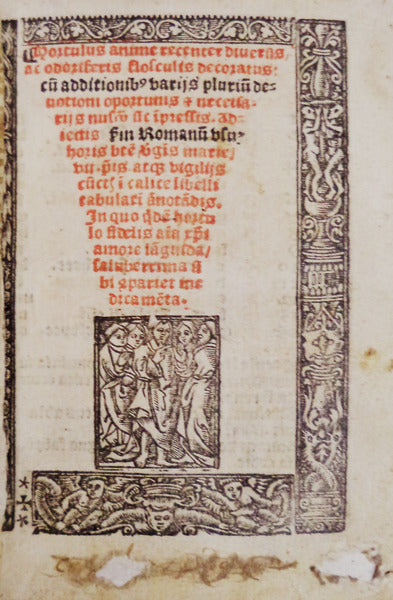 Hortulus anime recenter diuersis,
ac odoriferis flosculis decoratus:
cū additionibꝰ varijs plurium de
uotioni oportunis & necessa-
rijs nusq̄ȝ sic īpressis. Ad-
iectis ẜm Romanū vsū
horis bt̄e v̄gis marie,
vii-p̄is atqȝ vigilijs
calice libelli
tabulari ānotādis.
In quo q̄dē hortu
lo fidelis aīa xp̄i
amore lāguida,
saluberrima si
bi ꝯpariet me
dicamēta.